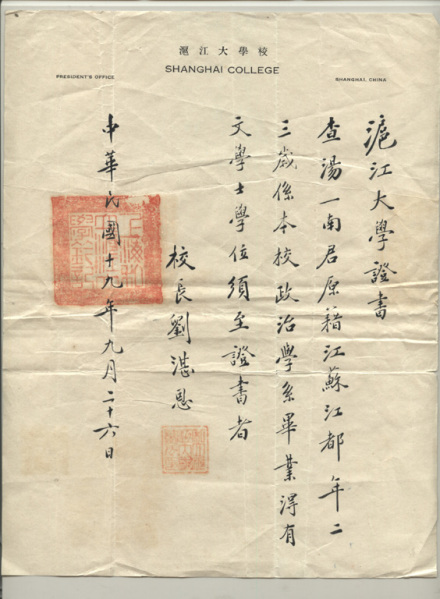 滬江大學校
SHANGHAI COLLEGE
PRESIDENT'S OFFICE
SHANGHAI, CHINA
滬江大學證書
查湯一南君原籍江蘇江都年二
三歲係本校政治學系畢業得有
文學士學位須至證書者
校長劉湛恩
中華民國十九年九月二十六日